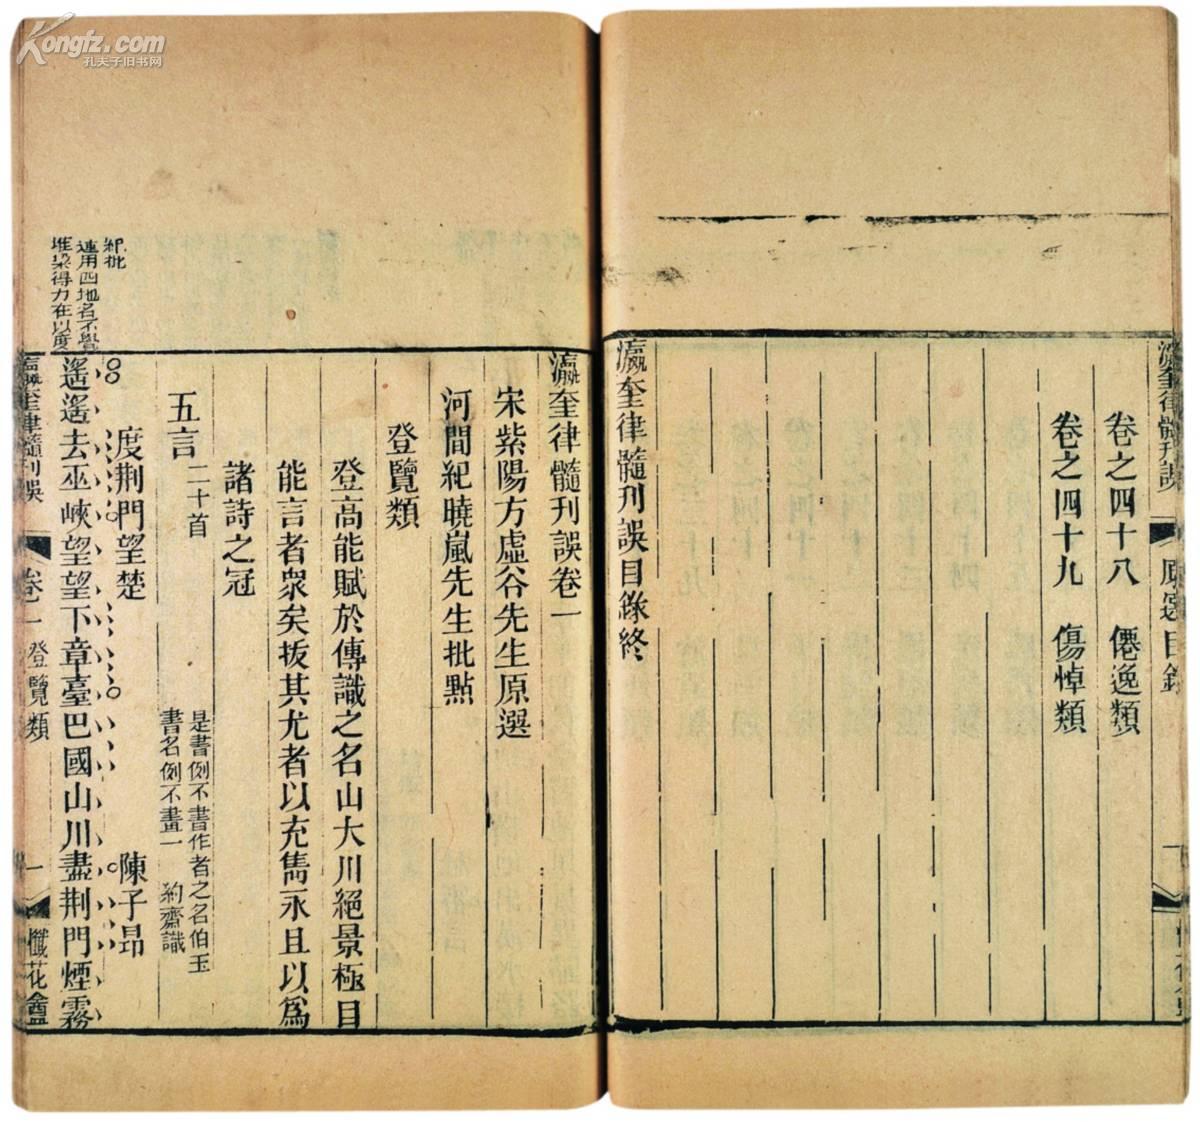 Kongfz.com
孔夫子旧书网
卷之四十八　僊逸類
卷之四十九　傷悼類
瀛奎律髓刊誤目錄終
瀛奎律髓刊誤卷一
宋紫陽方虛谷先生原選
河間紀曉嵐先生批點
登覽類
登高能賦於傳識之名山大川絕景極目
能言者眾矣拔其尤者以充雋永且以為
諸詩之冠
五言　二十首
是書例不書作者之名伯玉
書名例不畫一　約齋識
度荊門望楚　陳子昂
遙遙去巫峽望望下章臺巴國山川盡荊門煙霧
紀批
連用四地名不覺
堆垛得力在以度
瀛奎律髓刊誤　卷一　登覽類　一　懺花盦